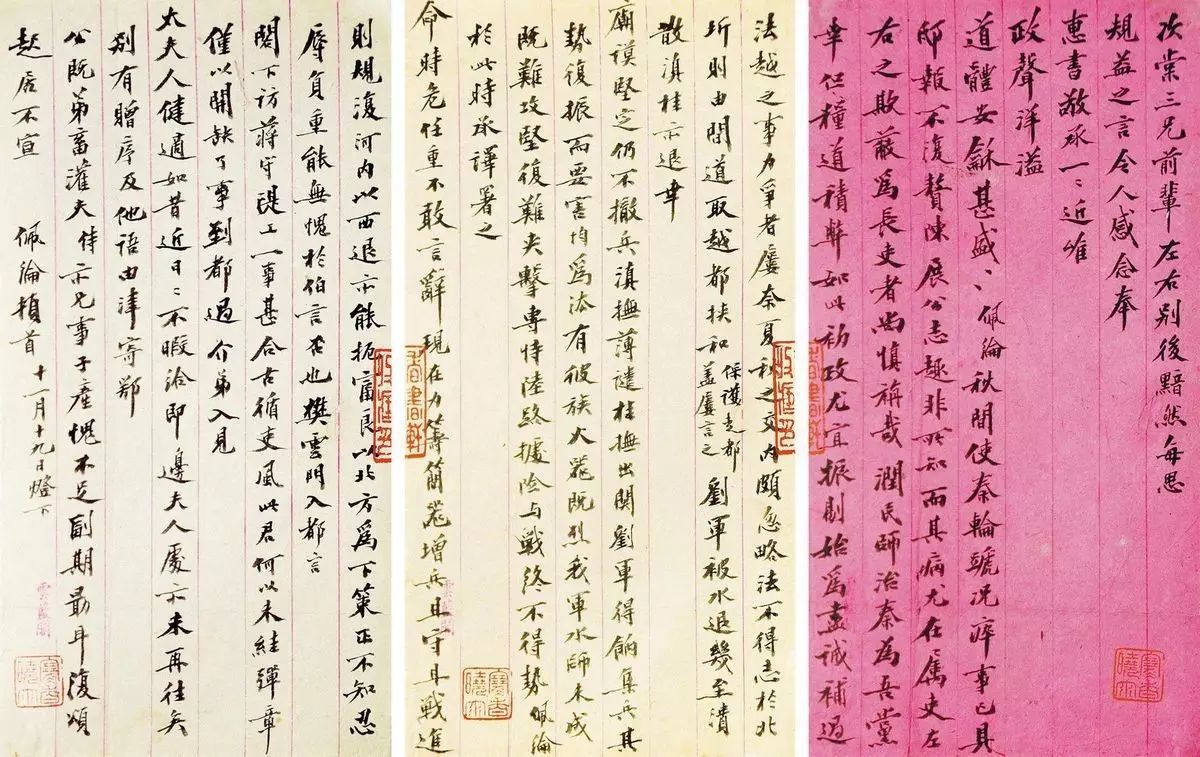 次棠三兄前輩左右別後黯然每思
規益之言令人感念奉
惠書敬承一一近唯
政聲洋溢
道體安龢甚盛甚盛佩綸秋間使秦輪號況瘁事已具
邸報不復贅陳展公志趣非所知而其病尤在屬吏左
右之欺蔽為長吏者尚慎旃哉潤民師治秦為吾黨
幸但糧道積弊如此初政尤宜振刷始為盡誠補過
法越之事力爭者屢奈夏秋之交內頗忽略法不得志於北
圻則由間道取越都扶和保護走都蓋屢言之劉軍被水退幾至潰
散滇桂亦退幸
廟謨堅定仍不撤兵滇撫薄譴桂撫出關劉軍得餉集兵其
勢復振而要害均為法有彼族火器既烈我軍水師未成
既難攻堅復難夾擊專恃陸路據險与戰終不得勢佩綸
於此時承譯署之
命時危任重不敢言辭現在力籌簡器增兵且守且戰進
則規復河內以西退亦能扼富良以北方為下策正不知忍
辱負重能無愧於伯言否也樊雲門入都言
閣下訪蔣守謨工一事甚合古循吏風此君何以未絓彈章
僅以開缺了事到都過介弟入見
太夫人健適如昔近日日不暇洽即邊夫人處亦未再往矣
別有贈序及他語由津寄鄂
公既弟畜灌夫侍亦兄事子產愧不足副期勗耳復頌
起居不宣 佩綸頓首 十一月十九日燈下